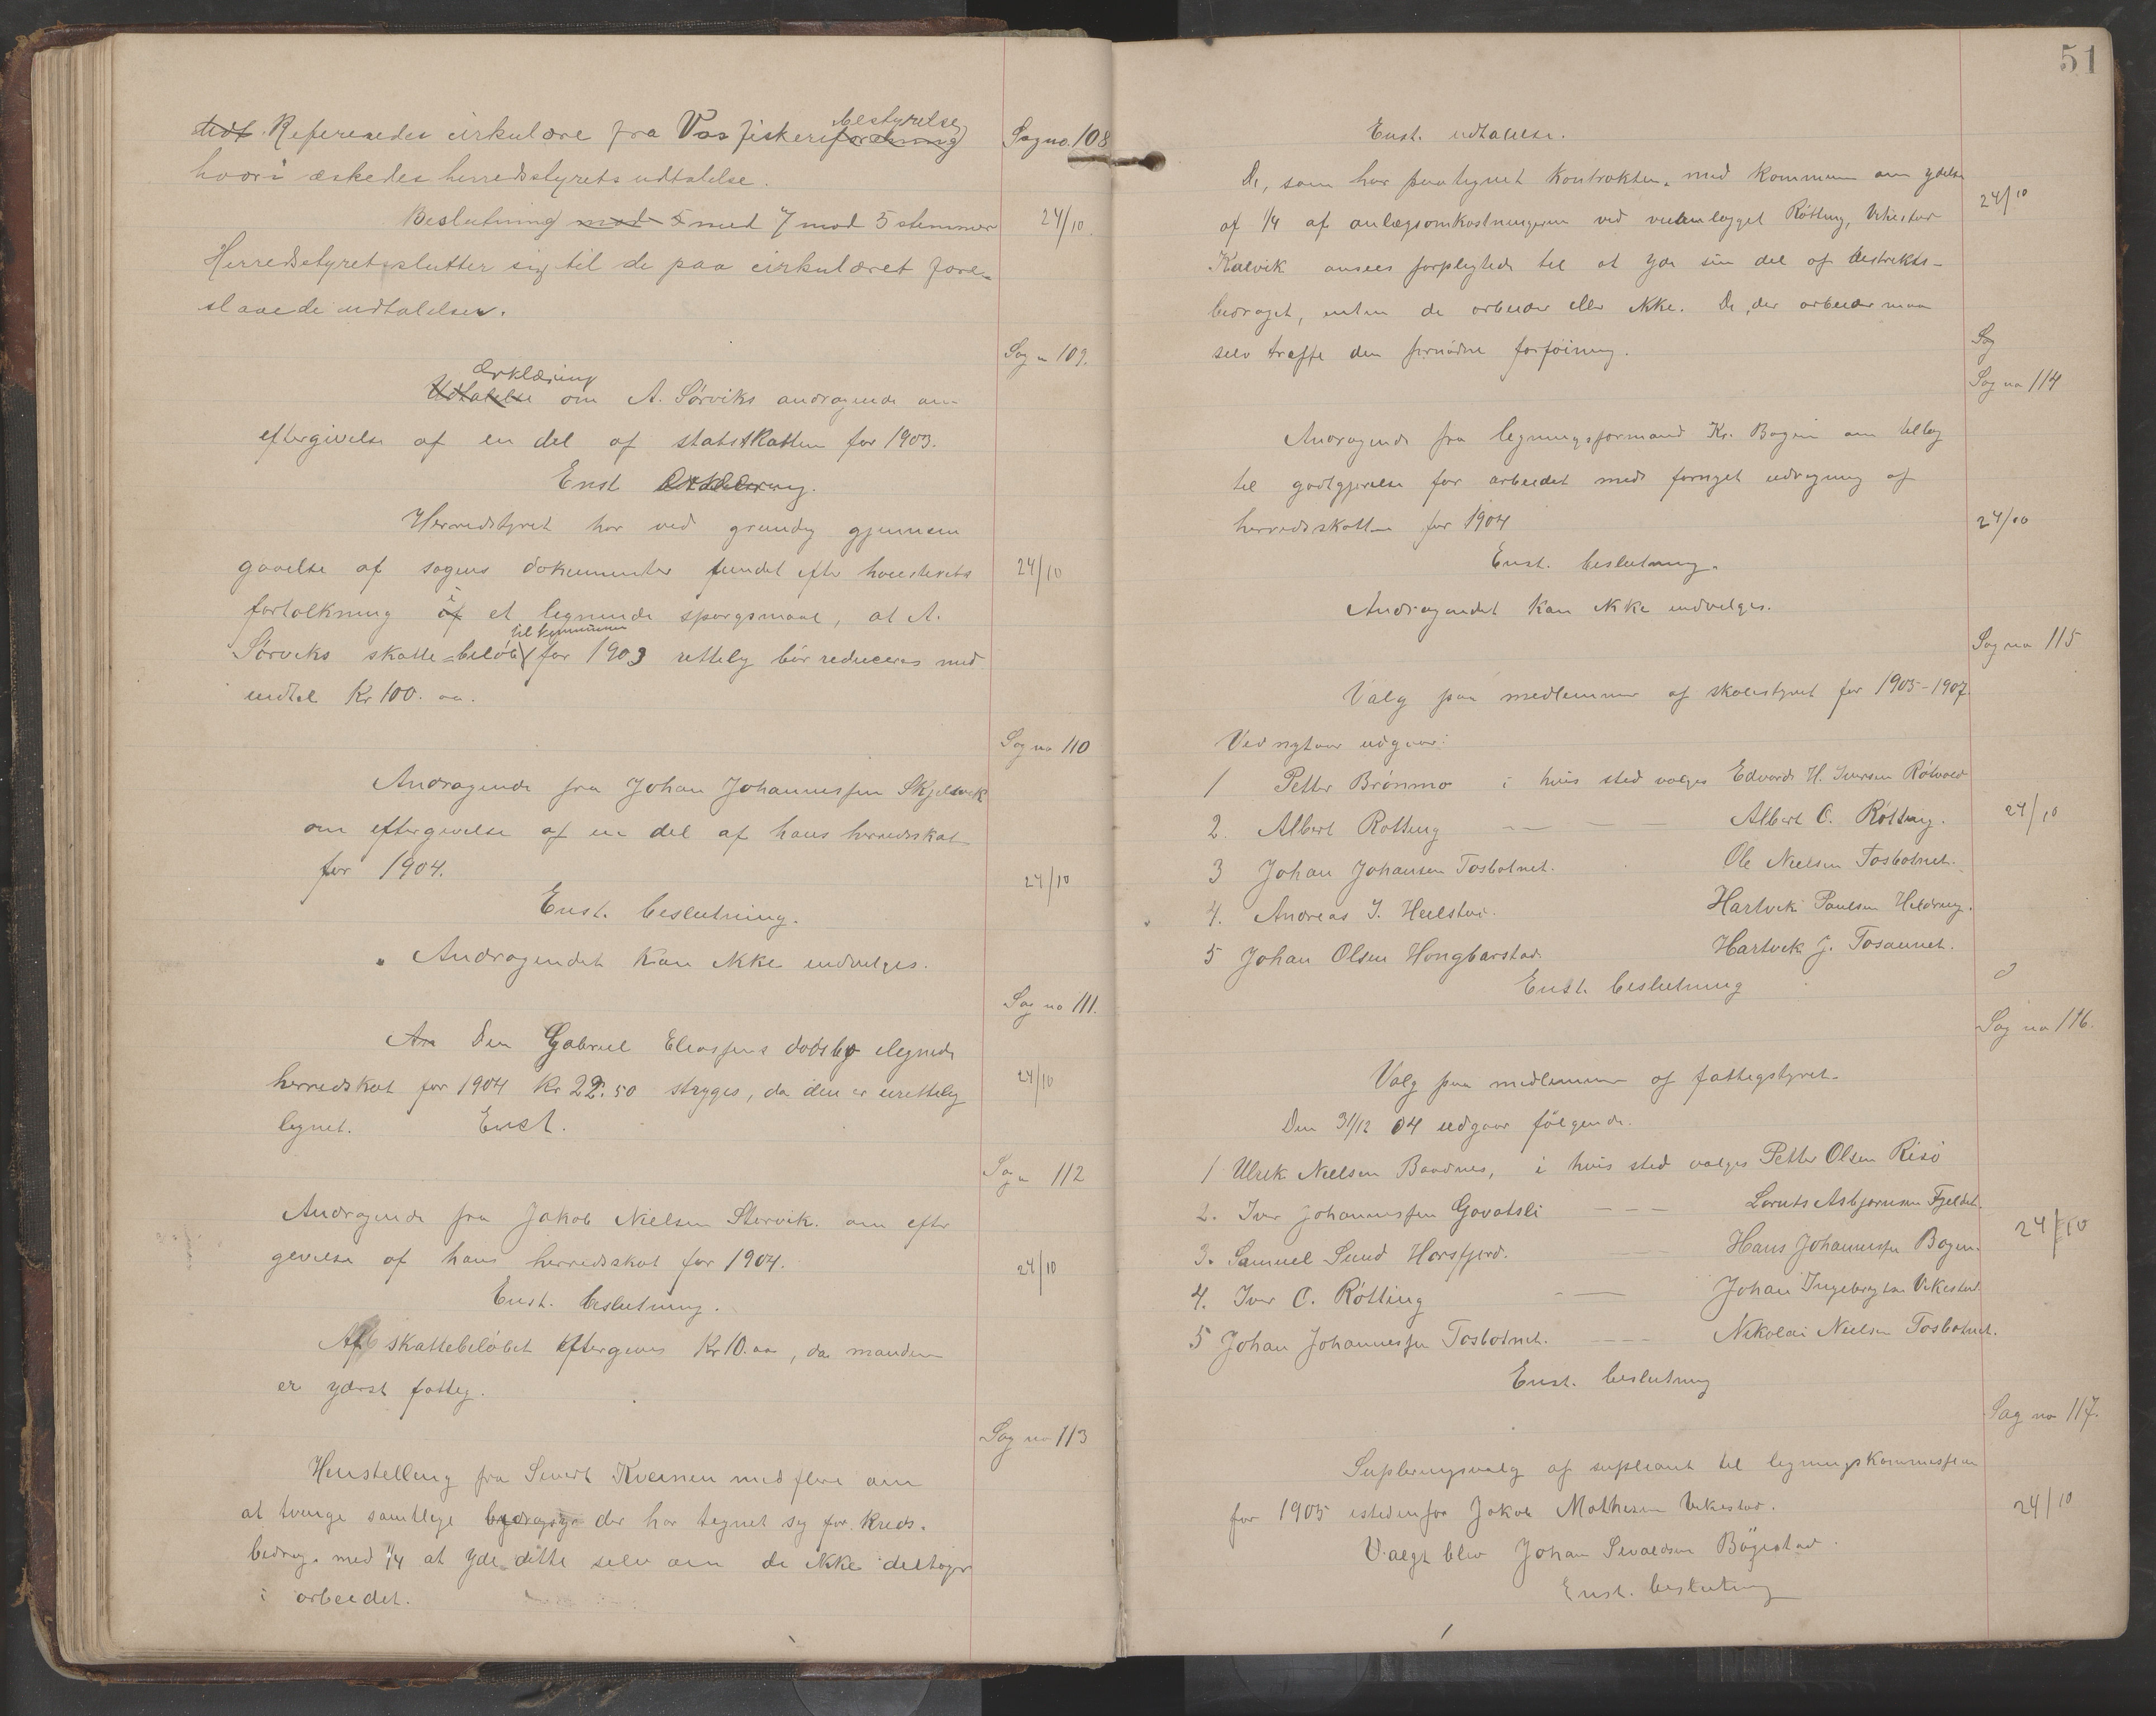 bestyrelse
Udt. Refereredes cirkulære fra Vas fiskeriforening Sag no. 108
hvori æskedes herredsstyrets udtalelse.
Beslutning med 5 med 7 mod 5 stemmer 24/10
Herredsstyret slutter sig til de paa cirkulæret fore-
slaaede udtalelser.
Sag n 109.
Erklæring
Udtalelse om A. Sørviks andragende om
eftergivelse af en del af statsskatten for 1903.
Enst Erklæring.
Herredstyret har ved grundig gjennem
gaaelse af sagens dokumenter fundet efter høiesterets 24/10
i
fortolkning af et lignende spørgsmaal, at A.
til kommunen
Sørviks skatte=beløb for 1903 rettelig bør reduceres med
indtil Kr 100. oo.
Sag no 110
Andragende fra Johan Johannessen Skjelsvik
om eftergivelse af en del af hans herredsskat
for 1904.
24/10
Enst. beslutning.
Andragendet kan ikke indvilges.
Sag no 111.
An Den Gabriel Eliassens dødsbo ilignede
herredskat for 1904 Kr 22.50 stryges, da den er urettelig 24/10
lignet. Enst.
Sag n 112
Andragende fra Jakob Nielsen Storvik. om efter
givelse af hans herredsskat for 1904.
24/10
Enst. beslutning.
Af skattebeløbet eftergives Kr 10. oo, da manden
er yderst fattig.
Sag no 113
Henstilling fra Sivert Kvernen med flere om
at tvinge samtlige der har tegnet sig for Kreds.
bidrag med 1/4 at yde dette selv om de ikke deltager
i arbeidet.
51
Enst. udtalelse.
De, som har paategnet kontrakten, med kommunen om ydelse
24/10
af 1/4 af anlægsomkostningerne ved veianlægget Røtting, Vikestad
Kalvik ansees forpligtede til at yde sin del af distrikts-
bidraget, enten de arbeider eller ikke. De, der arbeider maa
Sag
selv træffe den fornødne forføining.
Sag no 114
Andragende fra ligningsformand Kr. Bogen om tillæg
til godtgjørelse for arbeidet med fornyet udregning af
herredsskatten for 1904 24/10
Enst. beslutning.
Andragendet kan ikke indvilges.
Sag no 115
Valg paa medlemmer af skolestyret for 1905-1907
Ved nytaar udgaar:
1 Petter Brønmo i hvis sted valges Edvard H. Iversen Røtvold
2. Albert Røtting — — — Albert C. Røtting. 24/10
3 Johan Johansen Tosbotnet. Ole Nielsen Tosbotnet.
4. Andreas J. Hartvik Paulsen Heldring.
5 Johan Olsen Hongbarstad. Hartvik J. Tosaunet.
Enst. beslutning
Sag no 116.
Valg paa medlemmer af fattigstyret.
Den 31/12 04 udgaar følgende.
1 Ulrik Nielsen Baadnes, i hvis sted valges Petter Olsen Risø
2. Iver Johannessen Gavatsli — — — Lornts Asbjørnsen Fjeldet. 24/10
3. Samuel Sund Horsfjord. Hans Johannessen Bogen.
4. Iver C. Røtting — — Johan Ingebrigtsen Vikestad.
5 Johan Johannessen Tosbotnet. — — — Nikolai Nielsen Tosbotnet.
Enst. beslutning
Sag no 117.
Supleringsvalg af supleant til ligningskommissionen
for 1905 istedenfor Jakob Mathisen Vikestad. 24/10
Valgt blev Johan Sivaldsen Bøgestad.
Enst. beslutning